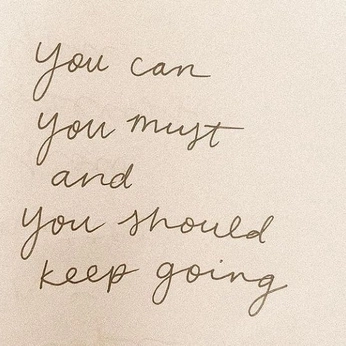 you can
you must
and
you should
keep going